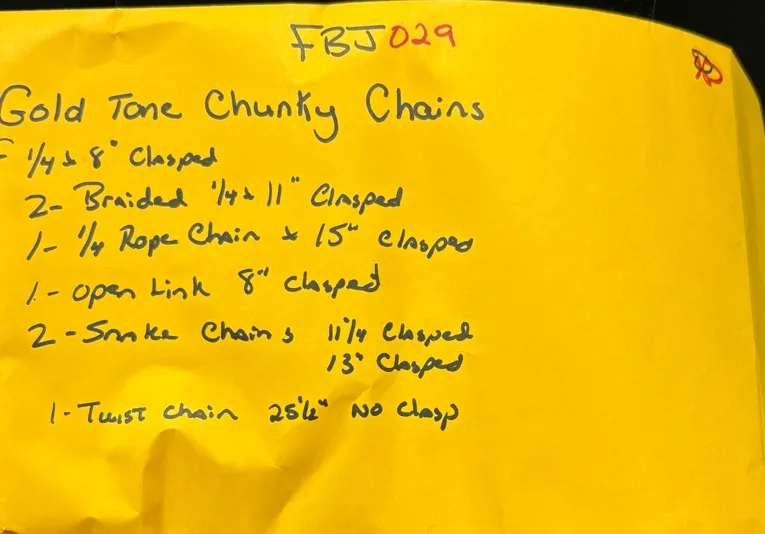 FBJ029
Gold Tone Chunky Chains
1/4 x 8" Clasped
2- Braided 1/4 x 11" Clasped
1- 1/4 Rope Chain x 15" Clasped
1- Open Link 8" Clasped
2- Snake Chains 11 1/4 Clasped
13" Clasped
1- Twist Chain 25 1/2" NO Clasp